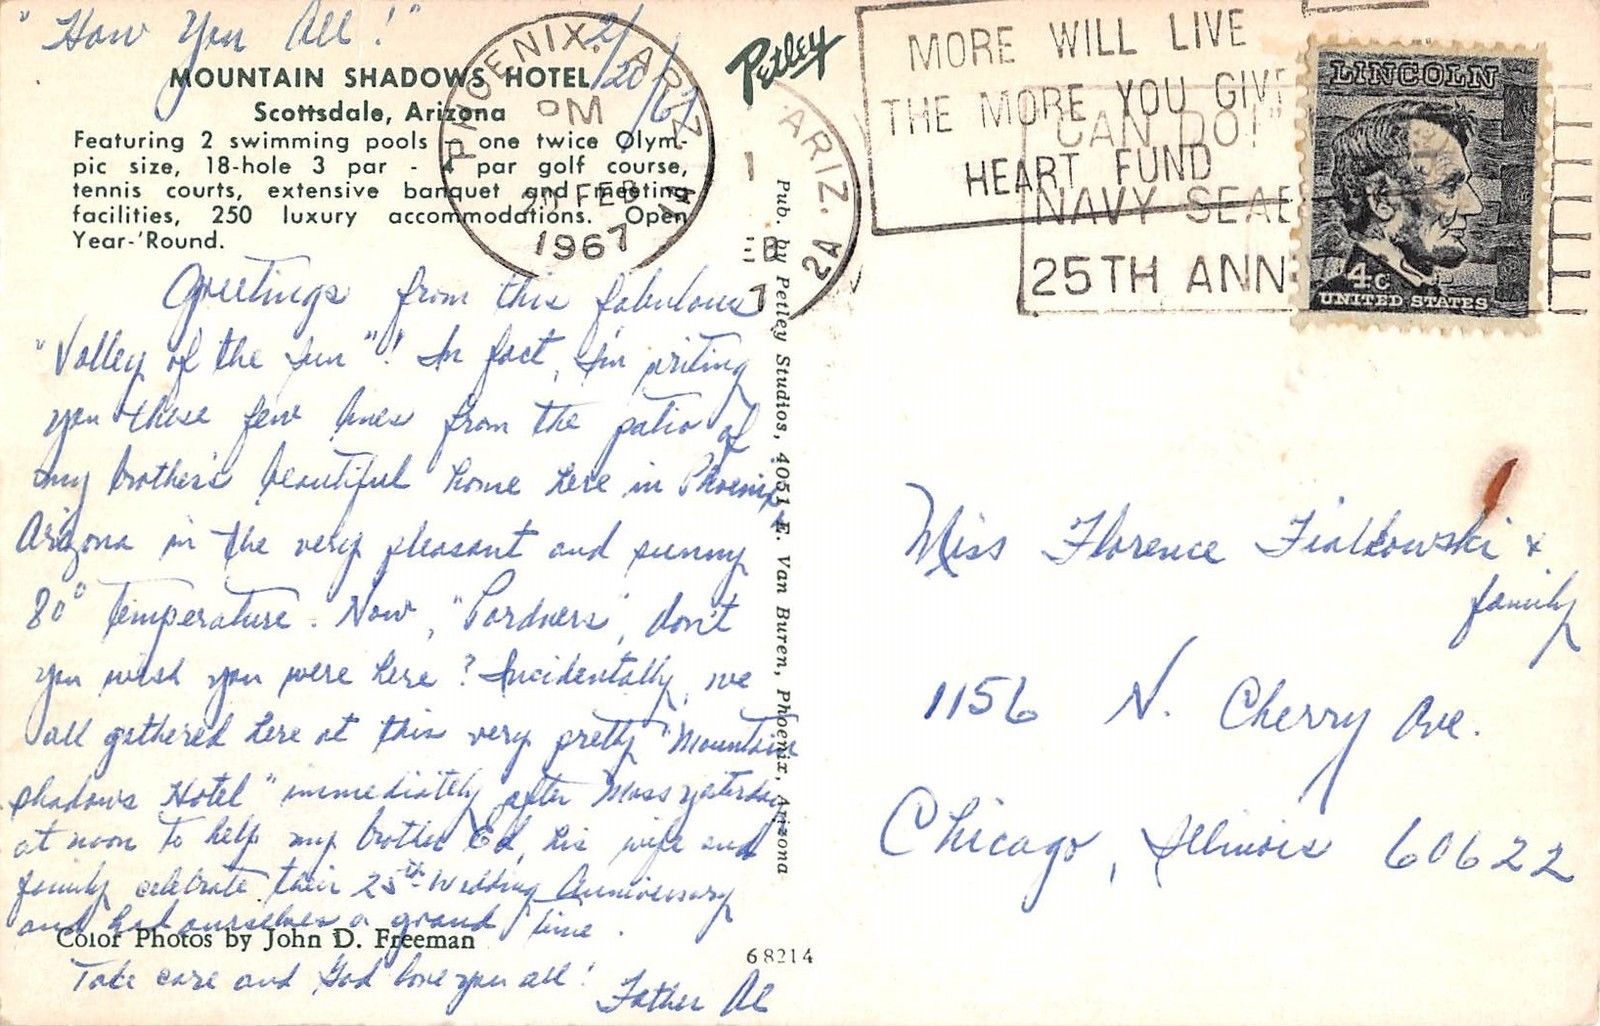 "How You All!" 2/20/67
MOUNTAIN SHADOWS HOTEL
Scottsdale, Arizona
Featuring 2 swimming pools - one twice Olym-
pic size, 18-hole 3 par - 4 par golf course,
tennis courts, extensive banquet and meeting
facilities, 250 luxury accommodations. Open
Year-'Round.
Greetings from this fabulous
"Valley of the Sun"! In fact, I'm writing
you these few lines from the patio of
my brother's beautiful home here in Phoenix,
Arizona in the very pleasant and sunny
80° temperature. Now, "Pardners", don't
you wish you were here? Incidentally, we
all gathered here at this very pretty "Mountain
Shadows Hotel" immediately after Mass yesterday
at noon to help my brother Ed, his wife and
family celebrate their 25th Wedding Anniversary
and had ourselves a grand time.
Color Photos by John D. Freeman
Take care and God love you all!
Father Al
68214
Petley
Pub. by Petley Studios, 4051 E. Van Buren, Phoenix, Arizona
PHOENIX, ARIZ
PM
20 FEB
1967
1A
ARIZ.
2A
MORE WILL LIVE
THE MORE YOU GIVE
HEART FUND
"CAN DO!"
NAVY SEAB
25TH ANN
LINCOLN
4c
UNITED STATES
Miss Florence Fialkowski &
family
1156 N. Cherry Ave.
Chicago, Illinois 60622